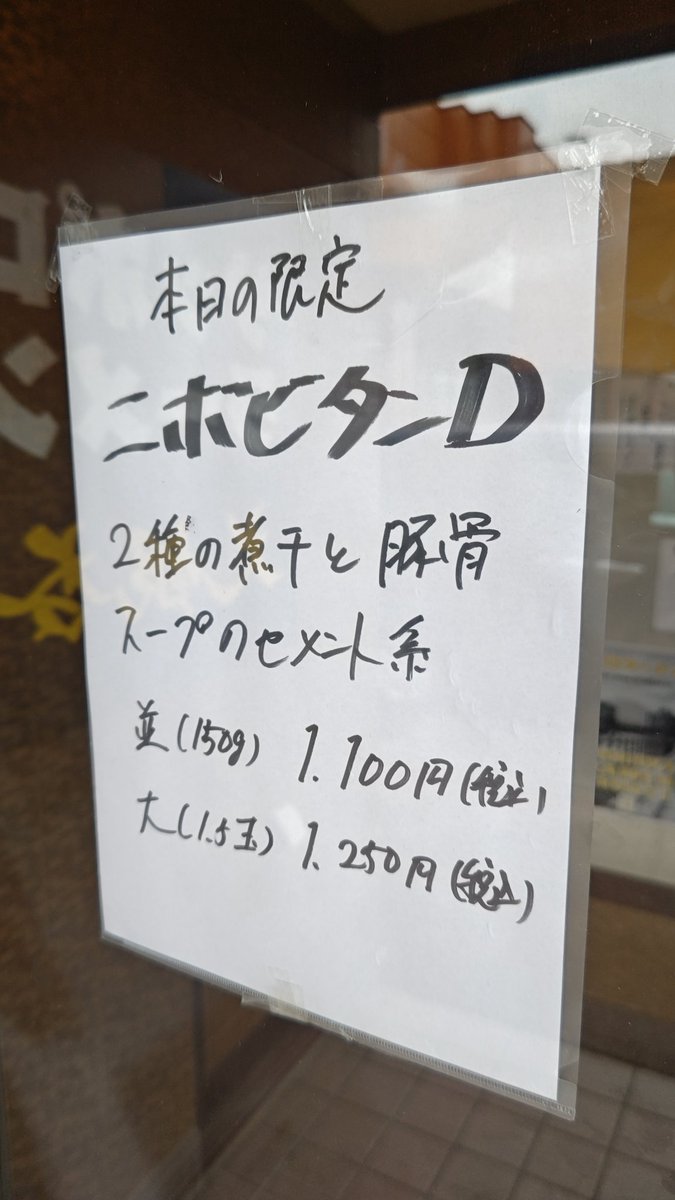 本日の限定
ニボビタンD
2種の煮干と豚骨
スープのセメント系
並(150g) 1.100円(税込)
大(1.5玉) 1.250円(税込)